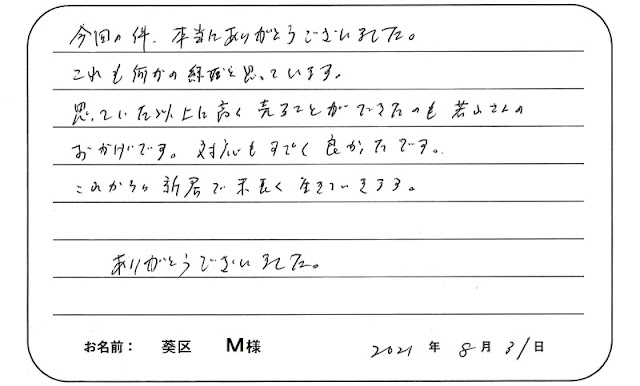 今回の件、本当にありがとうございました。
これも何かの縁だと思っています。
思っていた以上に高く売ることができたのも若山さんの
おかげです。対応もすごく良かったです。
これからも新居で末長く生きていきます。
ありがとうございました。
お名前： 葵区 M様 2021 年 8 月 31 日